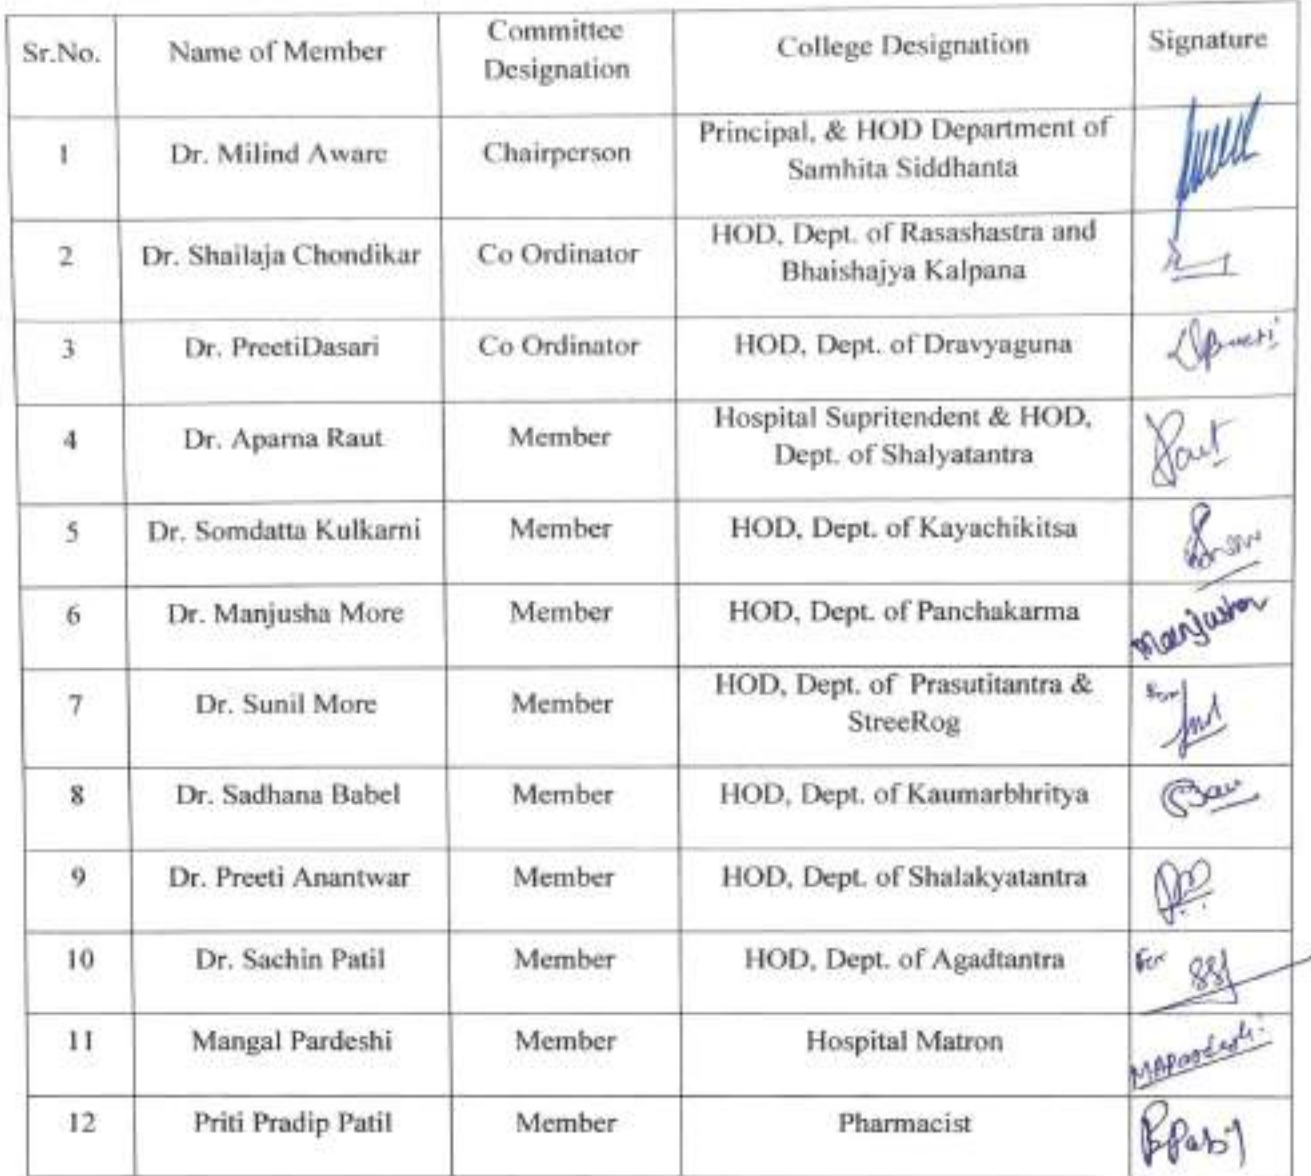 Sr.No. Name of Member Committee Designation College Designation Signature
1 Dr. Milind Aware Chairperson Principal, & HOD Department of
Samhita Siddhanta
2 Dr. Shailaja Chondikar Co Ordinator HOD, Dept. of Rasashastra and
Bhaishajya Kalpana
3 Dr. PreetiDasari Co Ordinator HOD, Dept. of Dravyaguna Preeti
4 Dr. Aparna Raut Member Hospital Supritendent & HOD,
Dept. of Shalyatantra Raut
5 Dr. Somdatta Kulkarni Member HOD, Dept. of Kayachikitsa
6 Dr. Manjusha More Member HOD, Dept. of Panchakarma Manjusha
7 Dr. Sunil More Member HOD, Dept. of Prasutitantra & For
StreeRog
8 Dr. Sadhana Babel Member HOD, Dept. of Kaumarbhritya
9 Dr. Preeti Anantwar Member HOD, Dept. of Shalakyatantra
10 Dr. Sachin Patil Member HOD, Dept. of Agadtantra For
11 Mangal Pardeshi Member Hospital Matron MAPardeshi
12 Priti Pradip Patil Member Pharmacist